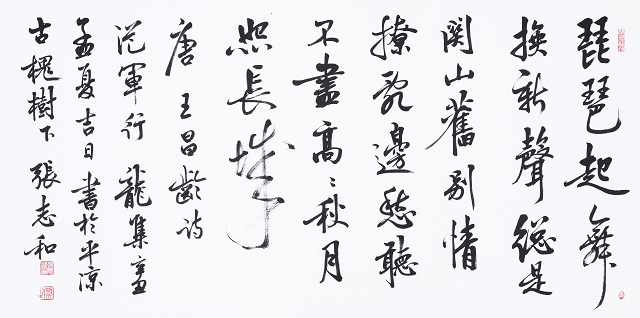 琵琶起舞
換新聲總是
関山舊别情
撩亂邊愁聽
不盡高〻秋月
照長城
唐 王昌齡诗
從軍行 龍集
孟夏吉日書於平涼
古槐樹下 張志和